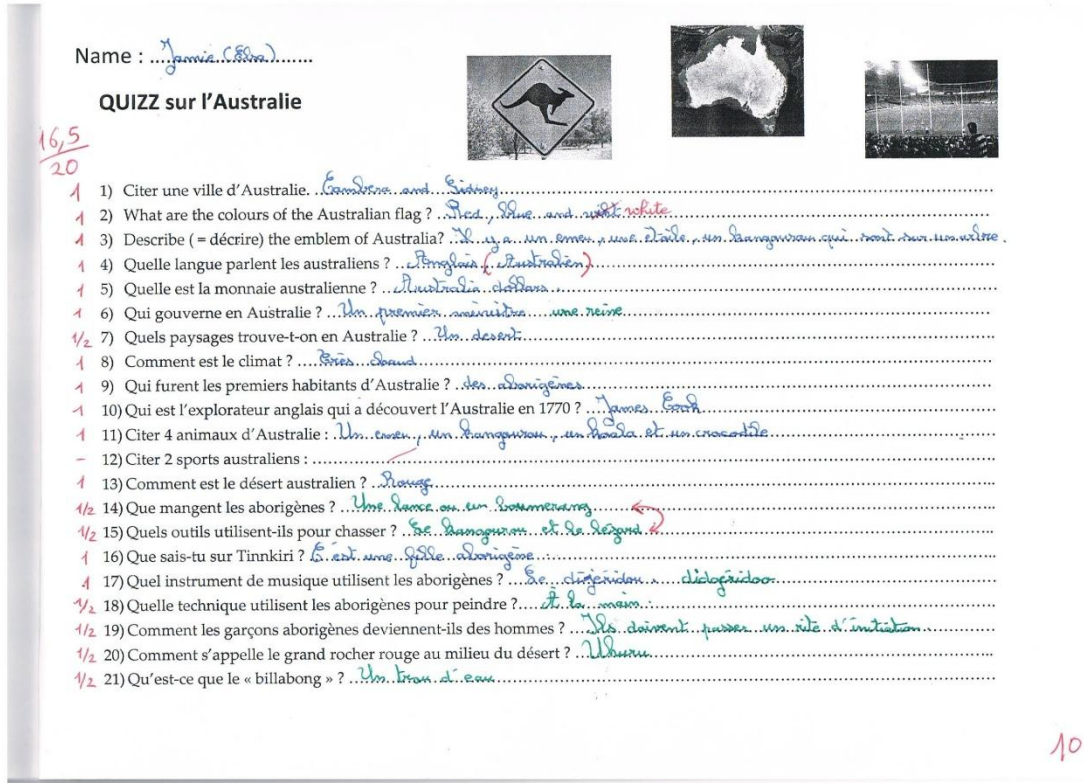 Name : ....Jamie (Elsa).......
QUIZZ sur l'Australie
16,5
20
1 1) Citer une ville d'Australie. Canberra and Sidney
1 2) What are the colours of the Australian flag ? Red, blue and white
1 3) Describe ( = décrire) the emblem of Australia? Il y a un emeu, une étoile, un kangourou qui sont sur un arbre.
1 4) Quelle langue parlent les australiens ? Anglais (Australien)
1 5) Quelle est la monnaie australienne ? Australia dollars.
1 6) Qui gouverne en Australie ? Un premier ministre une reine
1/2 7) Quels paysages trouve-t-on en Australie ? Un desert
1 8) Comment est le climat ? Très chaud
1 9) Qui furent les premiers habitants d'Australie ? des aborigènes
1 10) Qui est l'explorateur anglais qui a découvert l'Australie en 1770 ? James Cook
1 11) Citer 4 animaux d'Australie : Un emeu, un kangourou, un koala et un crocodile
– 12) Citer 2 sports australiens :
1 13) Comment est le désert australien ? Rouge
1/2 14) Que mangent les aborigènes ? Une lance ou un boumerang
1/2 15) Quels outils utilisent-ils pour chasser ? Le kangourou et le lézard
1 16) Que sais-tu sur Tinnkiri ? C'est une fille aborigène.
1 17) Quel instrument de musique utilisent les aborigènes ? Le didgeridou. didgéridoo
1/2 18) Quelle technique utilisent les aborigènes pour peindre ? À la main.
1/2 19) Comment les garçons aborigènes deviennent-ils des hommes ? Ils doivent passer un rite d'initiation
1/2 20) Comment s'appelle le grand rocher rouge au milieu du désert ? Uluru
1/2 21) Qu'est-ce que le « billabong » ? Un trou d'eau
10